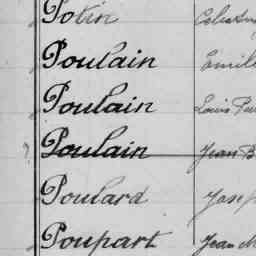 Potin
Poulain Emile
Poulain Louis
Poulain Jean B
Poulard Josep
Poupart Jean M